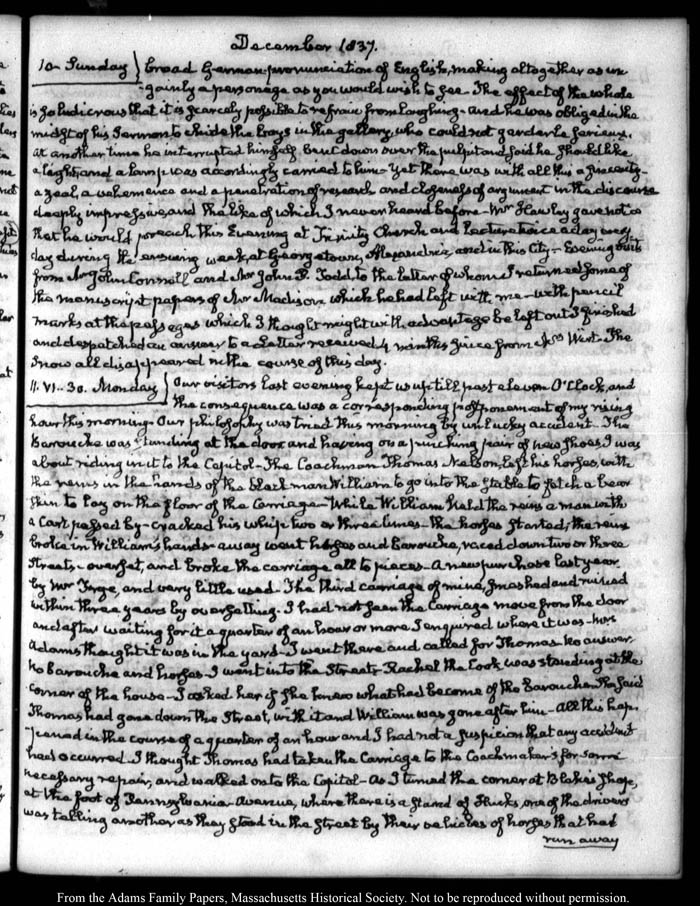 December 1837.
10. Sunday } broad German pronunciation of English, making altogether as un-
-gainly a personage as you would wish to see. The effect of the whole
is so ludicrous that it is scarcely possible to refrain from laughing. and he was obliged in the
midst of his Sermon to chide the boys in the gallery, who could not garder le serieux.
at another time he interrupted himself bent down over the pulpit and said he should like
a light, and a lamp was accordingly carried to him. Yet there was with all this a sincerity
a zeal, a vehemence and a penetration of research and closeness of argument in the discourse
deeply impressive, and the like of which I never heard before. Mr Hawley gave notice
that he would preach this Evening at Trinity Church and Lecture twice a day every
day during the ensuing week, at Georgetown, Alexandria, and in this City. Evening visits
from Mr John Connell and Mr John P. Todd, to the latter of whom I returned some of
the manuscript papers of Mr Madison, which he had left with me. with pencil
marks at the passages which I thought might with advantage be left out. I finished
and despatched an answer to a Letter received 4 months since from West. The
Snow all disappeared in the course of this day.
11. VI.. 30. Monday } Our visitors last evening kept us up till past eleven O'Clock, and
the consequence was a corresponding postponement of my rising
hour this morning. Our philosophy was tried this morning by unlucky accident. The
Barouche was standing at the door and having on a pinching pair of new shoes, I was
about riding in it to the Capitol. The Coachman Thomas Nelson, left his horses, with
the reins in the hands of the black man William to go into the stable to fetch a bear
skin to lay on the floor of the Carriage. While William held the reins a man with
a Cart passed by. cracked his whip two or three times. the horses started; the reins
broke in William's hands. away went horses and Barouche, raced down two or three
Streets. overset, and broke the carriage all to pieces. A new purchase last year
by Mr and very little used. The third carriage of mine, smashed and ruined
within three years by oversetting. I had not seen the Carriage move from the door
and after waiting for it a quarter of an hour or more I enquired where it was. Mrs
Adams thought it was in the yard. I went there and called for Thomas. No answer.
No Barouche and horses. I went into the Street. Rachel the Cook was standing at the
corner of the house. I asked her if she knew what had become of the Barouche. She said
Thomas had gone down the Street, with it and William was gone after him. All this hap-
-pened in the course of a quarter of an hour and I had not a suspicion that any accident
had occurred. I thought Thomas had taken the Carriage to the Coachmaker's for some
necessary repair, and walked on to the Capitol. As I turned the corner at Blake's shop,
at the foot of Pennsylvania Avenue, where there is a stand of Hacks, one of the drivers
was telling another as they stood in the Street by their vehicles of horses that had
run away
From the Adams Family Papers, Massachusetts Historical Society. Not to be reproduced without permission.